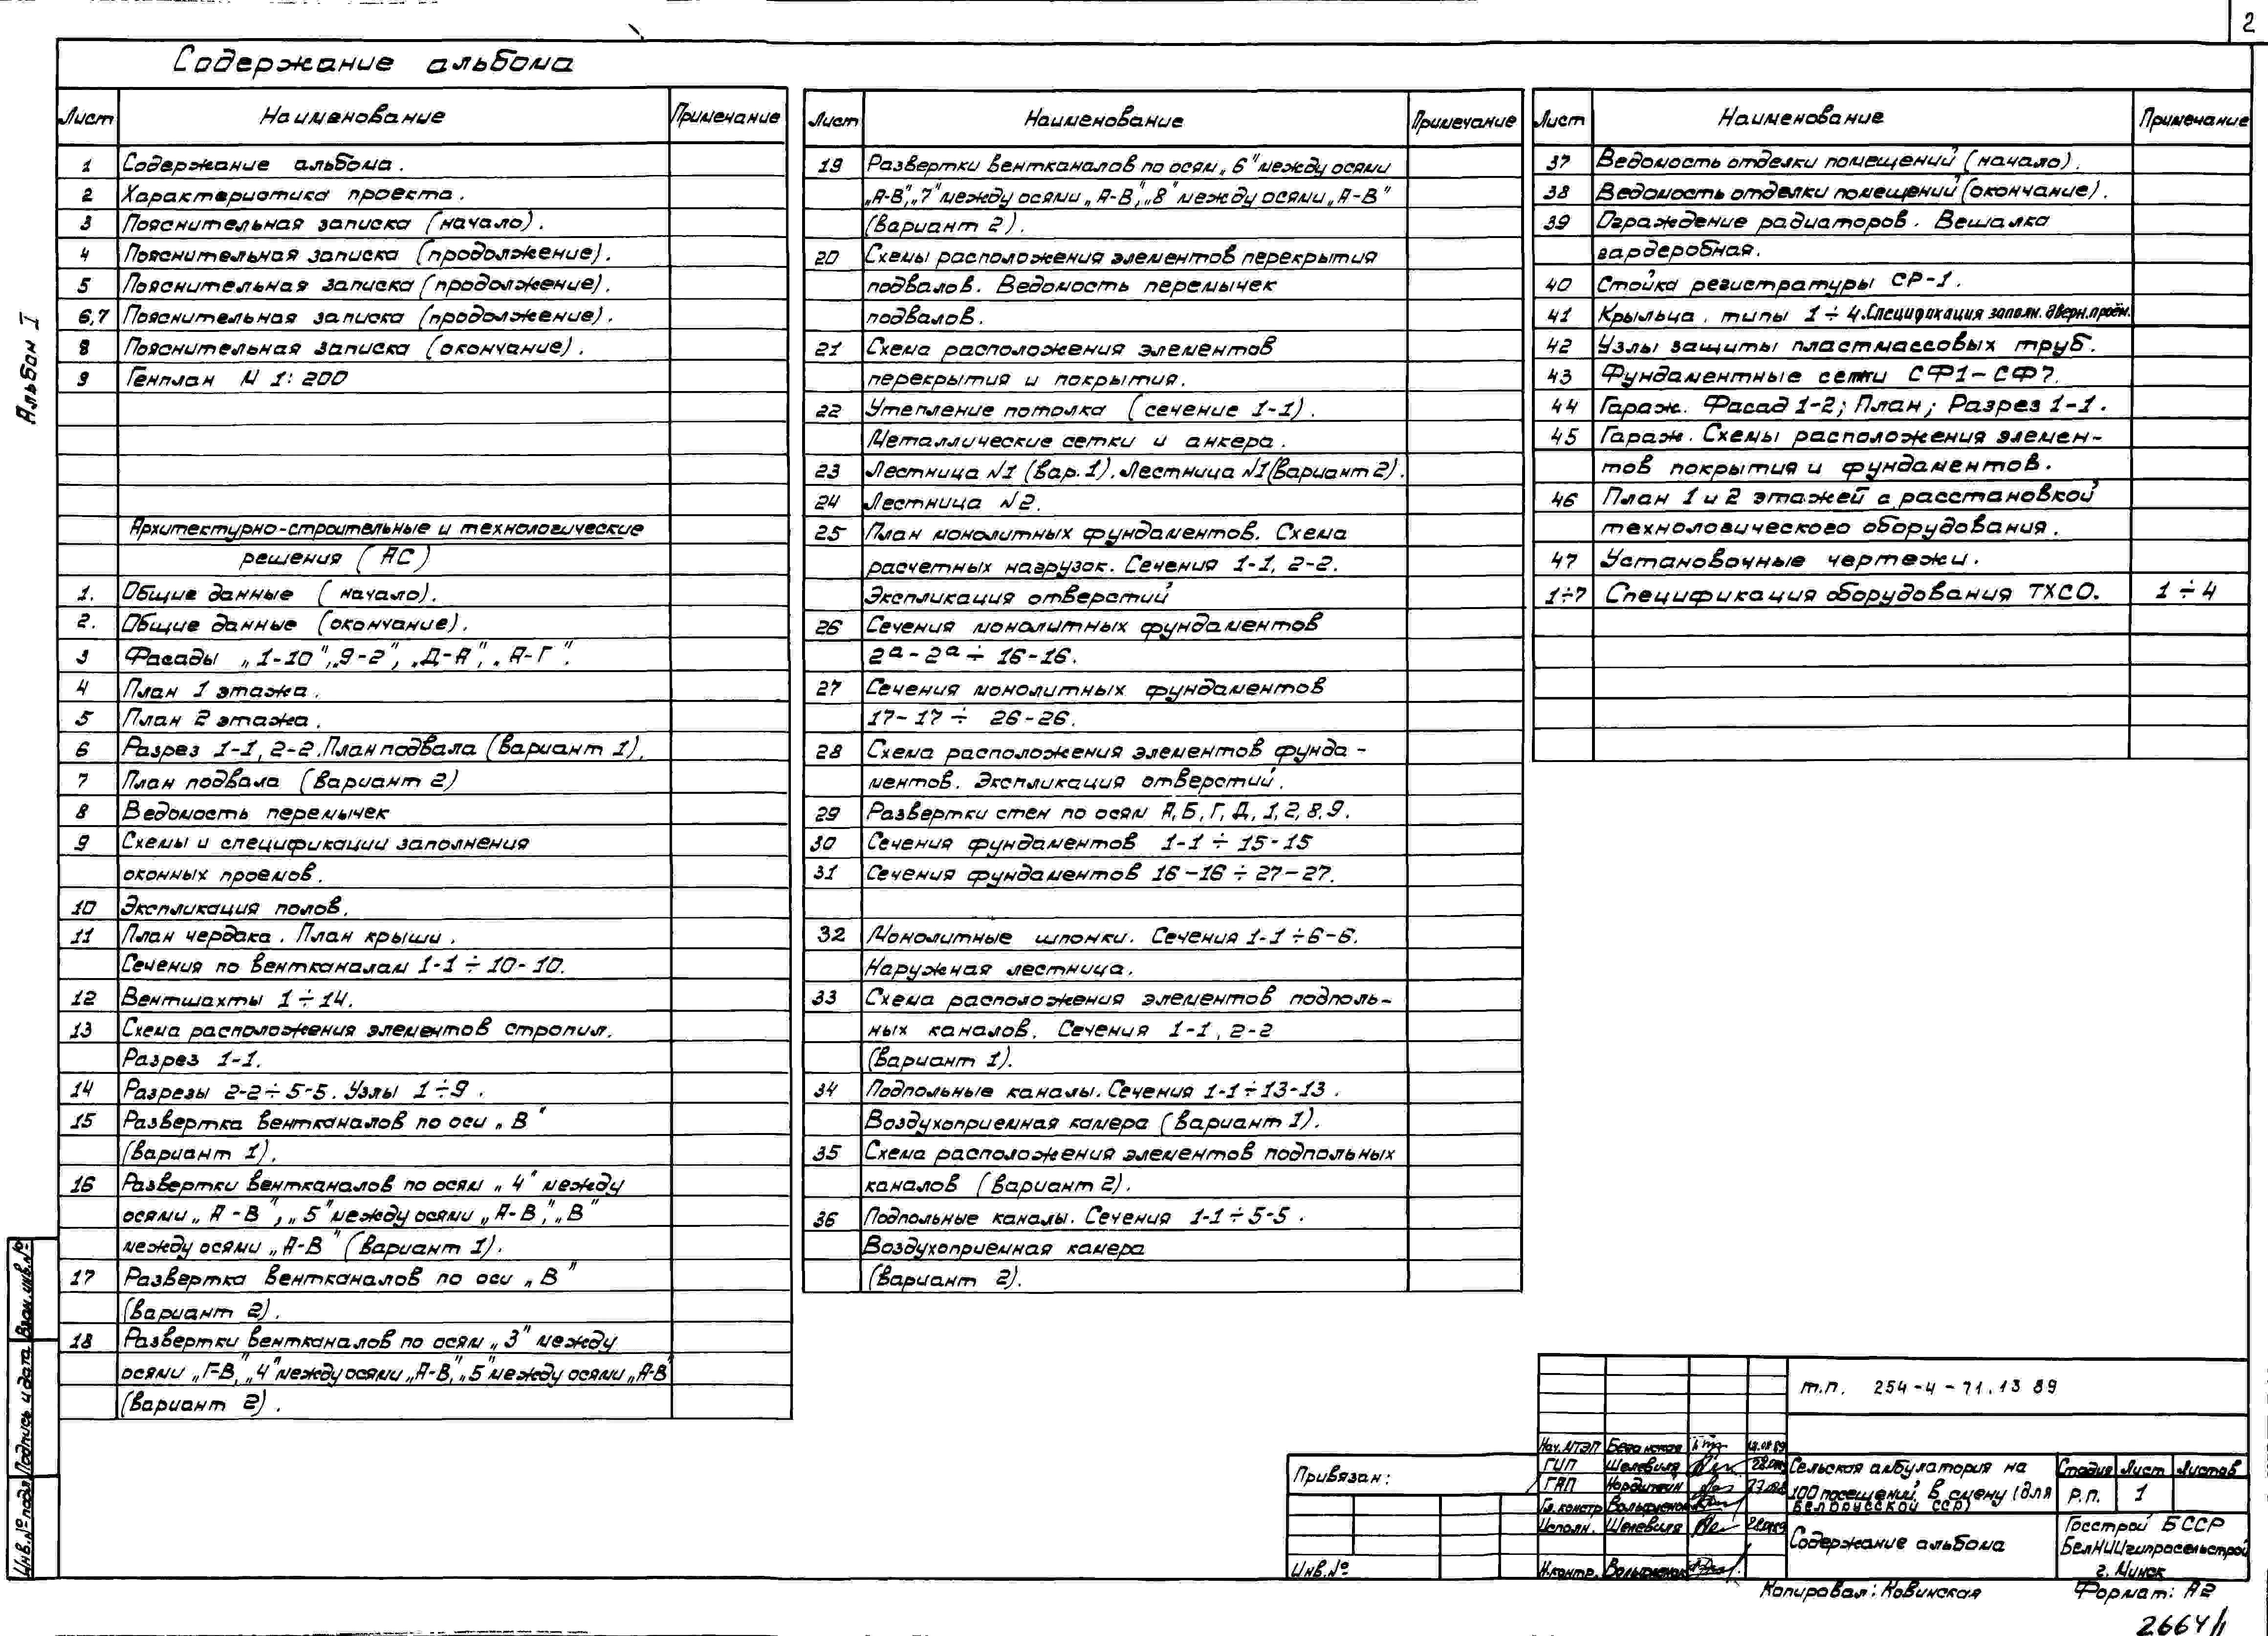 2
Содержание альбома
Альбом I
Лист Наименование Примечание
1 Содержание альбома.
2 Характеристика проекта.
3 Пояснительная записка (начало).
4 Пояснительная записка (продолжение).
5 Пояснительная записка (продолжение).
6,7 Пояснительная записка (продолжение).
8 Пояснительная записка (окончание).
9 Генплан М 1:200
Архитектурно-строительные и технологические
решения (АС)
1. Общие данные (начало).
2. Общие данные (окончание).
3 Фасады „1-10", „9-2", „Д-А", „А-Г".
4 План 1 этажа.
5 План 2 этажа.
6 Разрез 1-1, 2-2. План подвала (вариант 1).
7 План подвала (вариант 2)
8 Ведомость перемычек
9 Схемы и спецификации заполнения
оконных проемов.
10 Экспликация полов.
11 План чердака. План крыши.
Сечения по вентканалам 1-1 ÷ 10-10.
12 Вентшахты 1 ÷ 14.
13 Схема расположения элементов стропил.
Разрез 1-1.
14 Разрезы 2-2 ÷ 5-5. Узлы 1 ÷ 9.
15 Развертка вентканалов по оси „В"
(вариант 1).
16 Развертки вентканалов по осям „4" между
осями „А-В", „5" между осями „А-В", „В"
между осями „А-В" (вариант 1).
17 Развертка вентканалов по оси „В"
(вариант 2).
18 Развертки вентканалов по осям „3" между
осями „Г-В", „4" между осями „А-В", „5" между осями „А-В"
(вариант 2).
Лист Наименование Примечание
19 Развертки вентканалов по осям „6" между осями
„А-В", „7" между осями „А-В", „8" между осями „А-В"
(вариант 2).
20 Схемы расположения элементов перекрытия
подвалов. Ведомость перемычек
подвалов.
21 Схема расположения элементов
перекрытия и покрытия.
22 Утепление потолка (сечение 1-1).
Металлические сетки и анкера.
23 Лестница №1 (вар. 1). Лестница №1 (вариант 2).
24 Лестница №2.
25 План монолитных фундаментов. Схема
расчетных нагрузок. Сечения 1-1, 2-2.
Экспликация отверстий
26 Сечения монолитных фундаментов
2а-2а ÷ 16-16.
27 Сечения монолитных фундаментов
17-17 ÷ 26-26.
28 Схема расположения элементов фунда-
ментов. Экспликация отверстий.
29 Развертки стен по осям А, Б, Г, Д, 1, 2, 8, 9.
30 Сечения фундаментов 1-1 ÷ 15-15
31 Сечения фундаментов 16-16 ÷ 27-27.
32 Монолитные шпонки. Сечения 1-1 ÷ 6-6.
Наружная лестница.
33 Схема расположения элементов подполь-
ных каналов. Сечения 1-1, 2-2
(вариант 1).
34 Подпольные каналы. Сечения 1-1 ÷ 13-13.
Воздухоприемная камера (вариант 1).
35 Схема расположения элементов подпольных
каналов (вариант 2).
36 Подпольные каналы. Сечения 1-1 ÷ 5-5.
Воздухоприемная камера
(вариант 2).
Лист Наименование Примечание
37 Ведомость отделки помещений (начало).
38 Ведомость отделки помещений (окончание).
39 Ограждение радиаторов. Вешалка
гардеробная.
40 Стойка регистратуры СР-1.
41 Крыльца, типы 1 ÷ 4. Спецификация заполн. дверн. проём.
42 Узлы защиты пластмассовых труб.
43 Фундаментные сетки СФ1-СФ7.
44 Гараж. Фасад 1-2; План; Разрез 1-1.
45 Гараж. Схемы расположения элемен-
тов покрытия и фундаментов.
46 План 1 и 2 этажей с расстановкой
технологического оборудования.
47 Установочные чертежи.
1÷7 Спецификация оборудования ТХСО. 1 ÷ 4
Взам. инв. №
Подпись и дата
Инв. № подл.
Привязан:
Инв. №
т.п. 254-4-71.13 89
Нач. МТЭП
ГИП Шелевиля
ГАП
Гл. констр.
Исполн. Шелевиля
Н. контр.
Сельская амбулатория на
100 посещений в смену (для
Белорусской ССР)
Стадия Лист Листов
Р.П. 1
Содержание альбома
Госстрой БССР
БелНИИгипросельстрой
г. Минск
Копировал: Ковинская Формат: А2
2664/1